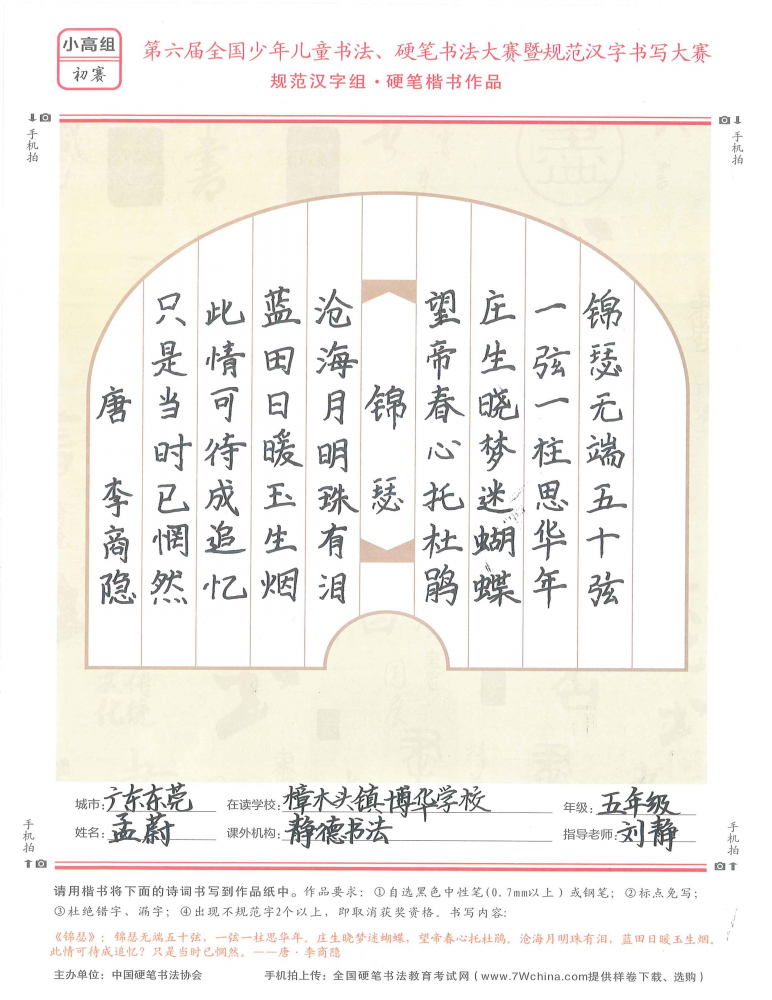 小高组
初赛
第六届全国少年儿童书法、硬笔书法大赛暨规范汉字书写大赛
规范汉字组·硬笔楷书作品
手机拍
手机拍
锦瑟无端五十弦
一弦一柱思华年
庄生晓梦迷蝴蝶
望帝春心托杜鹃
锦瑟
沧海月明珠有泪
蓝田日暖玉生烟
此情可待成追忆
只是当时已惘然
唐 李商隐
手机拍
手机拍
城市:广东东莞 在读学校:樟木头镇博华学校 年级:五年级
姓名:孟蔚 课外机构:静德书法 指导老师:刘静
请用楷书将下面的诗词书写到作品纸中。作品要求:①自选黑色中性笔(0.7mm以上)或钢笔;②标点免写;
③杜绝错字、漏字;④出现不规范字2个以上,即取消获奖资格。书写内容:
《锦瑟》:锦瑟无端五十弦,一弦一柱思华年。庄生晓梦迷蝴蝶,望帝春心托杜鹃。沧海月明珠有泪,蓝田日暖玉生烟。
此情可待成追忆?只是当时已惘然。——唐·李商隐
主办单位:中国硬笔书法协会 手机拍上传:全国硬笔书法教育考试网(www.7Wchina.com提供样卷下载、选购)